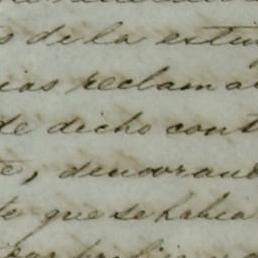 s de la estin
ias reclama
de dicho cont
te, demorand
to que se habia